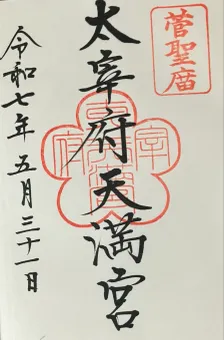 菅聖庿
太宰府天満宮
令和七年五月三十一日